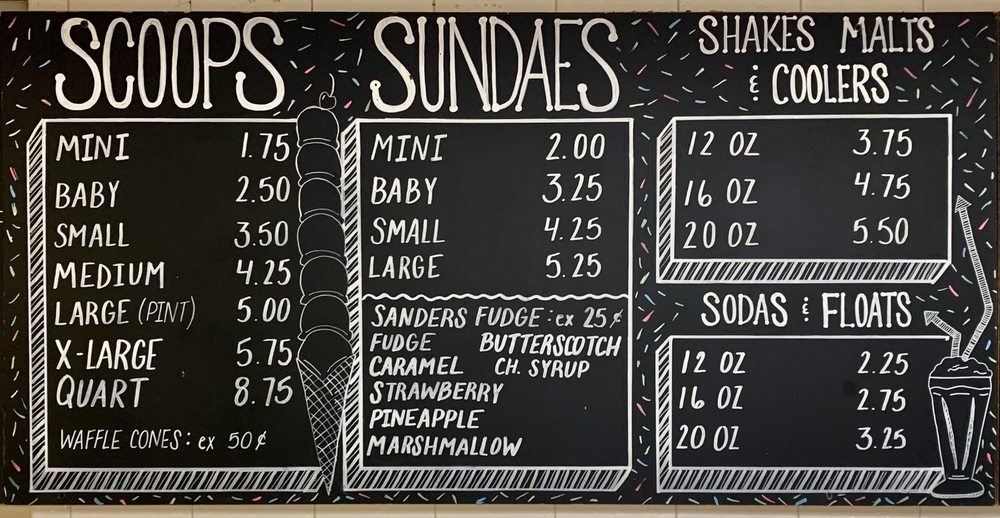 SCOOPS
MINI 1.75
BABY 2.50
SMALL 3.50
MEDIUM 4.25
LARGE (PINT) 5.00
X-LARGE 5.75
QUART 8.75
WAFFLE CONES: ex 50¢
SUNDAES
MINI 2.00
BABY 3.25
SMALL 4.25
LARGE 5.25
SANDERS FUDGE: ex 25¢
FUDGE BUTTERSCOTCH
CARAMEL CH. SYRUP
STRAWBERRY
PINEAPPLE
MARSHMALLOW
SHAKES MALTS
& COOLERS
12 OZ 3.75
16 OZ 4.75
20 OZ 5.50
SODAS & FLOATS
12 OZ 2.25
16 OZ 2.75
20 OZ 3.25